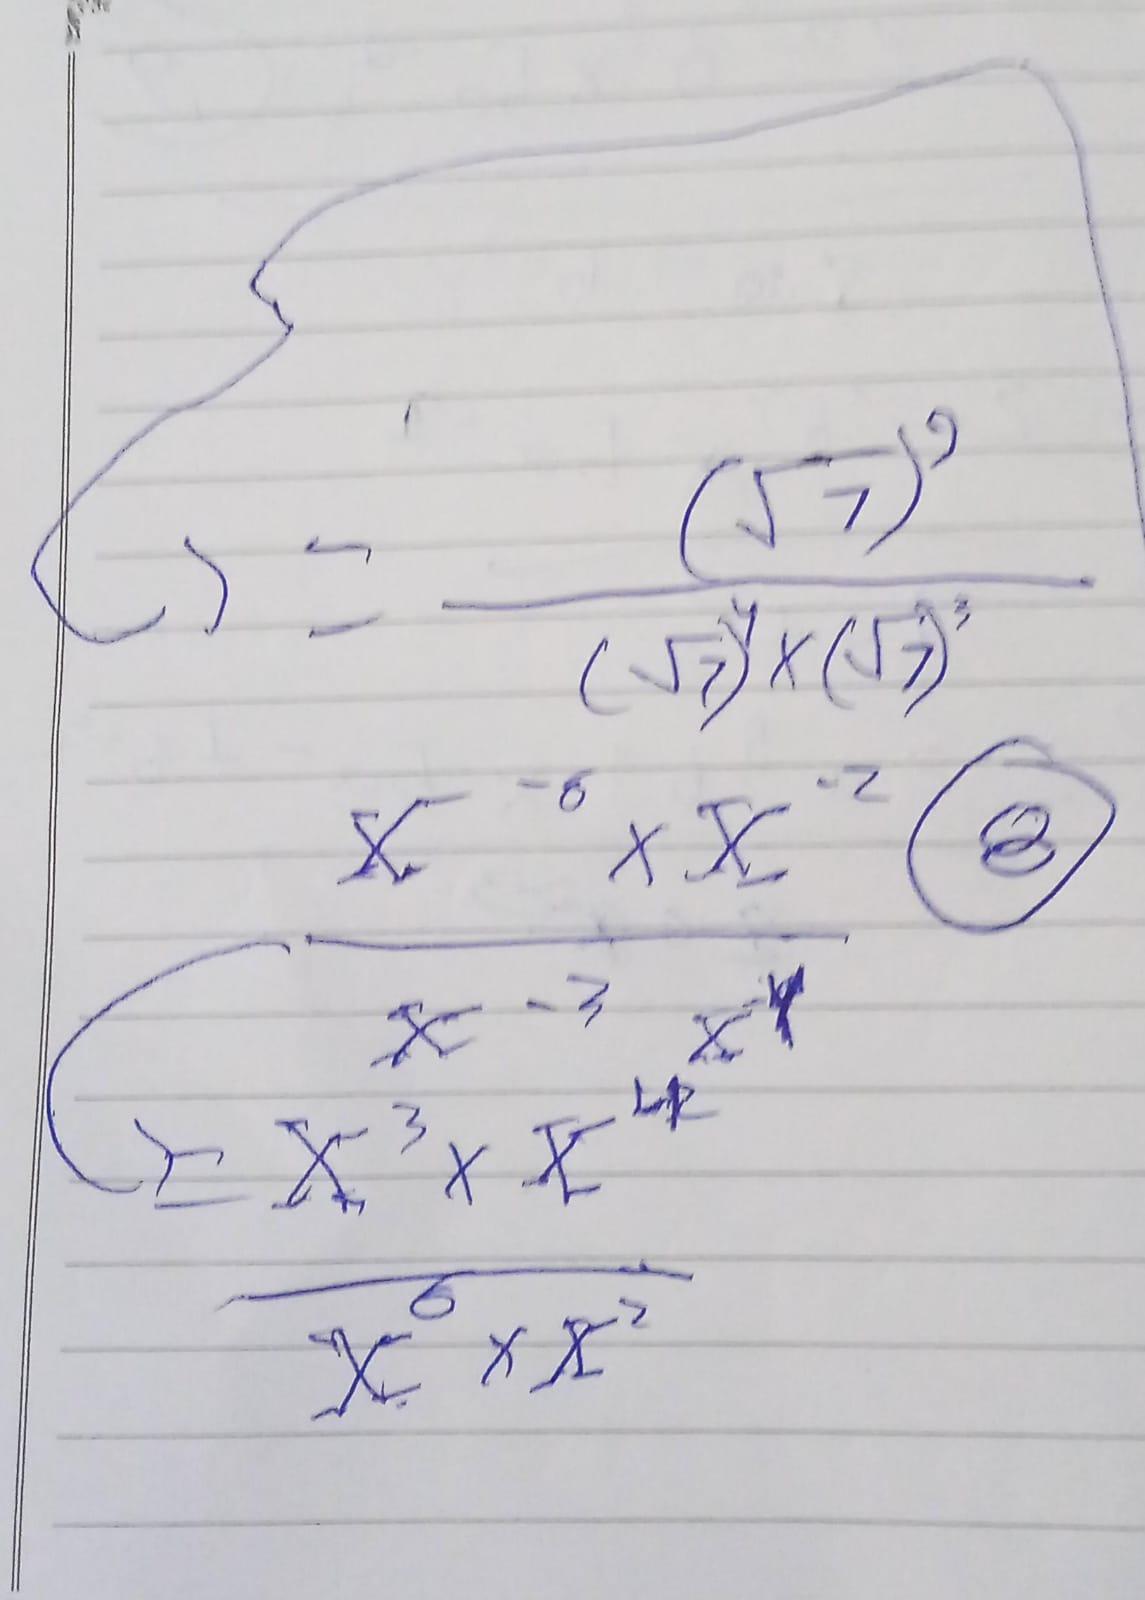 = (√7)⁹
(√7)⁴ × (√7)³
x⁻⁶ × x⁻² ②
x⁻³ x⁻⁴
= x³ × x⁴
x⁶ × x²